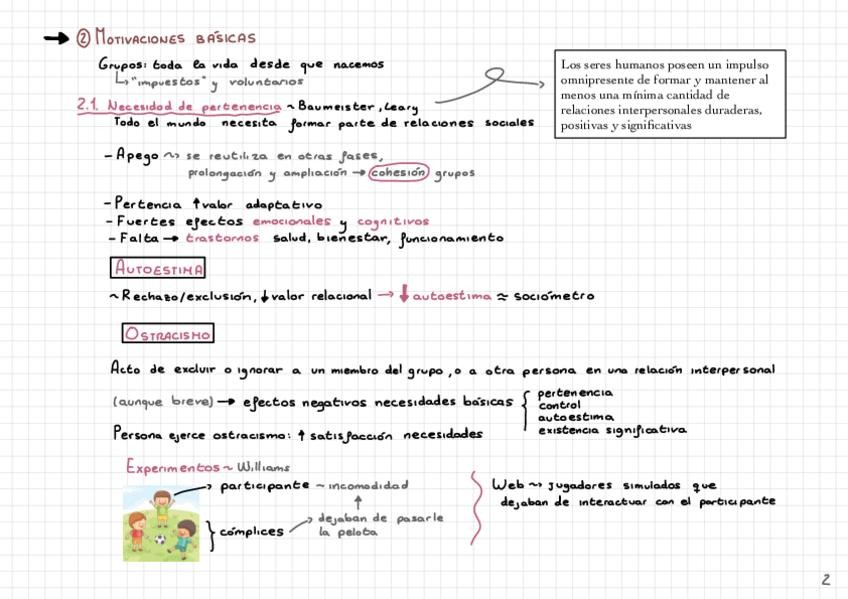 ② MOTIVACIONES BÁSICAS
Grupos: toda la vida desde que nacemos
↳ "impuestos" y voluntarios
Los seres humanos poseen un impulso
omnipresente de formar y mantener al
menos una mínima cantidad de
relaciones interpersonales duraderas,
positivas y significativas
2.1. Necesidad de pertenencia ~ Baumeister, Leary
Todo el mundo necesita formar parte de relaciones sociales
- Apego ~> se reutiliza en otras fases,
prolongación y ampliación → cohesión grupos
- Pertencia ↑ valor adaptativo
- Fuertes efectos emocionales y cognitivos
- Falta → trastornos salud, bienestar, funcionamiento
AUTOESTIMA
~ Rechazo/exclusión, ↓ valor relacional → ↓ autoestima ≈ sociómetro
OSTRACISMO
Acto de excluir o ignorar a un miembro del grupo, o a otra persona en una relación interpersonal
(aunque breve) → efectos negativos necesidades básicas {
pertenencia
control
autoestima
existencia significativa
Persona ejerce ostracismo: ↑ satisfacción necesidades
Experimentos ~ Williams
participante ~ incomodidad
cómplices
dejaban de pasarle
la pelota
Web ~> jugadores simulados que
dejaban de interactuar con el participante
2